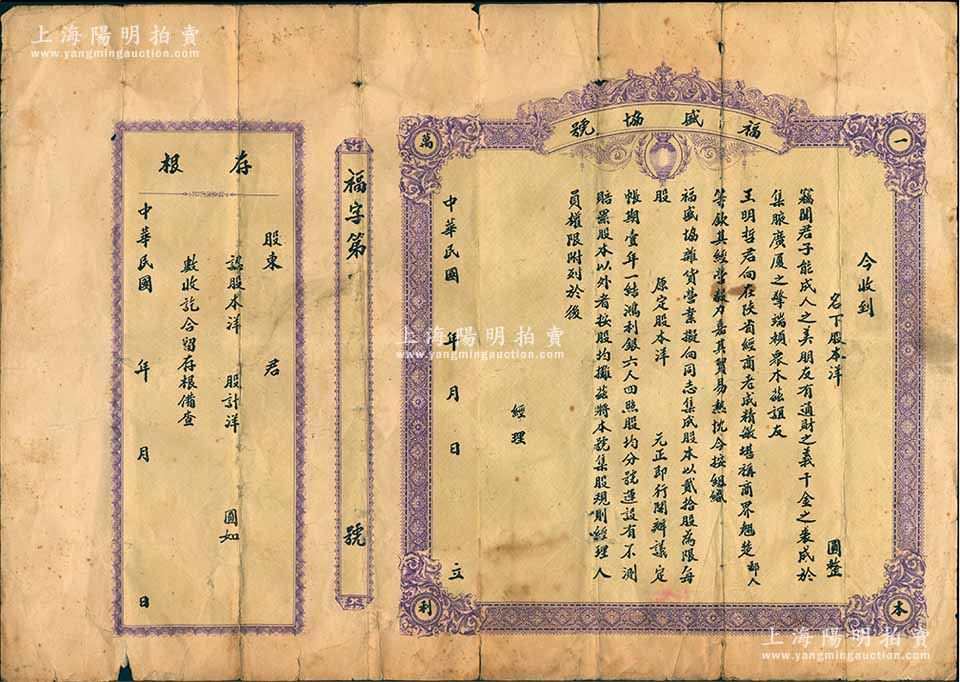 上海陽明拍賣
www.yangmingauction.com
福盛協號
一本萬利
今收到
名下股本洋　圓整
竊聞君子能成人之美朋友有通財之義千金之裘成於
集腋廣厦之擎端賴衆木茲誼友
王明哲君向在陝省經商老成精敏堪稱商界翹楚鄙人
等欽其經營毅力嘉其貿易熱忱今按組織
福盛協雜貨營業擬向同志集成股本以貳拾股為限每
股　原定股本洋　元正即行開辦議定
帳期壹年一結鴻利銀六人四照股均分號運設有不測
賠累股本以外者按股均攤茲將本號集股規則經理人
員權限附列於後
經理
中華民國　年　月　日　立
福字第　號
存根
股東　君
認股本洋　股計洋　圓如
數收訖合留存根備查
中華民國　年　月　日
上海陽明拍賣
www.yangmingauction.com
上海陽明拍賣
www.yangmingauction.com